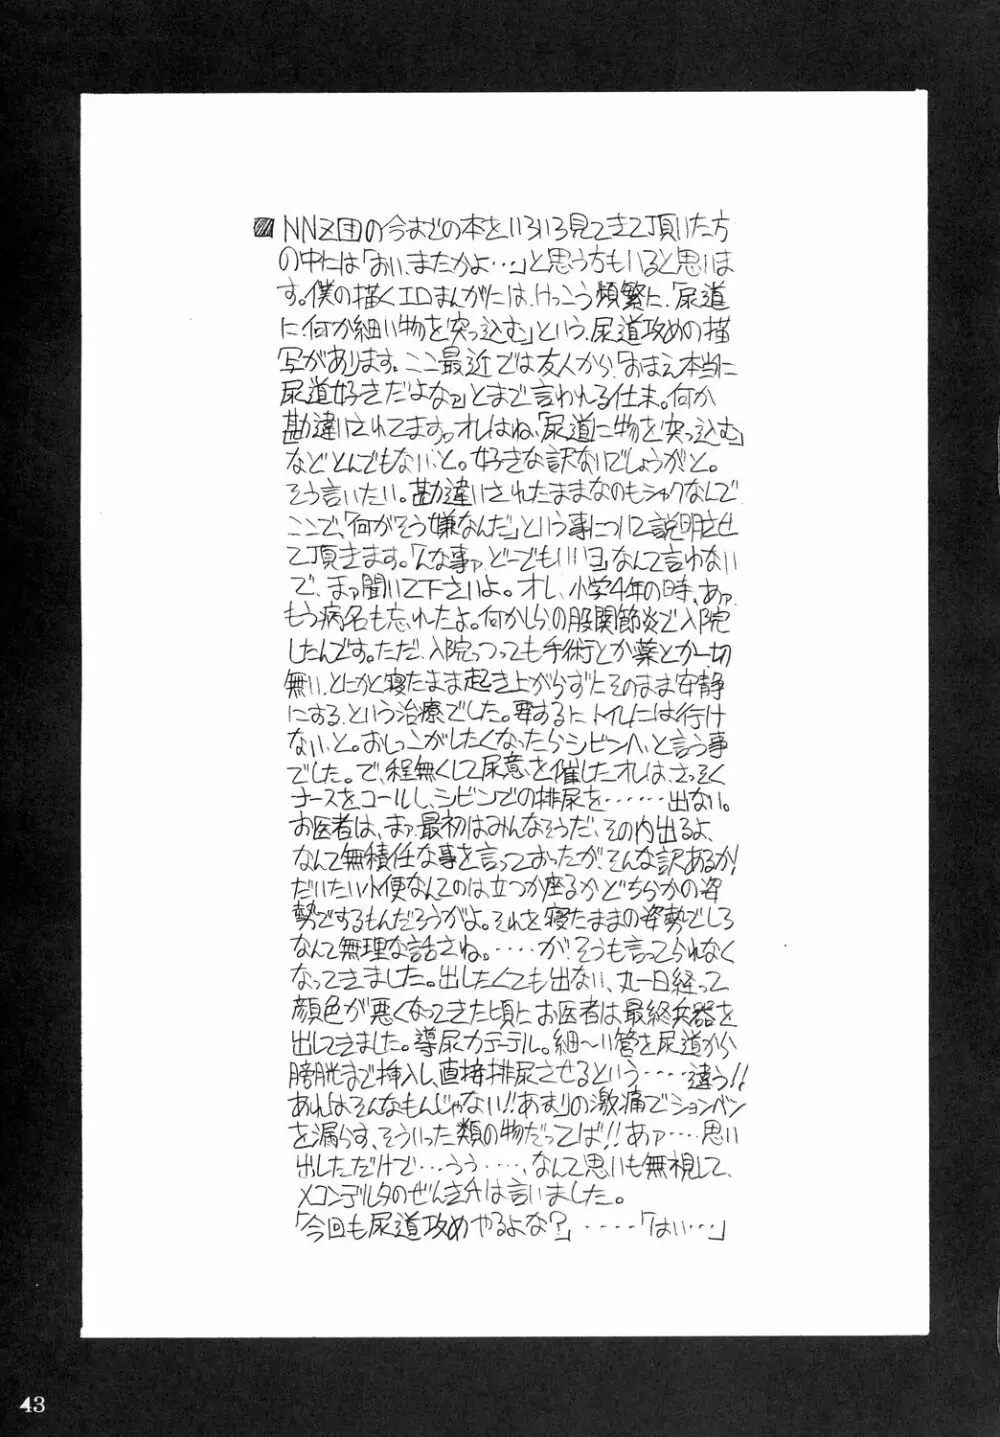 NNZ団の今までの本をいろいろ見てきて頂いた方
の中には「おい、またかよ…」と思う方もいると思いま
す。僕の描くエロまんがには、けっこう頻繁に、「尿道
に何か細い物を突っ込む」という、尿道攻めの描
写があります。ここ最近では友人から、「おまえ本当に
尿道好きだよなァ」とまで言われる仕末。何か
勘違いされてますっ。オレはね、「尿道に物を突っ込む」
などとんでもない、と。好きな訳ないでしょうが、と。
そう言いたい。勘違いされたままなのもシャクなんで
ここで、「何がそう嫌なんだ」という事について説明させ
て頂きます。「んな事ァ、どーでもいいヨ」なんて言わない
で、まァ聞いて下さいよ。オレ、小学4年の時、あァ、
もう病名も忘れたよ。何かしらの股関節炎で入院
したんです。ただ、入院っつっても手術とか薬とか一切
無い、とにかく寝たまま起き上がらずにそのまま安静
にする、という治療でした。要するに、トイレには行け
ない、と。おしっこがしたくなったらシビンへ、と言う事
でした。で、程無くして尿意を催したオレは、さっそく
ナースをコールし、シビンでの排尿を……出ない。
お医者は、まァ、最初はみんなそうだ、その内出るよ、
なんて無積任な事を言っておったがそんな訳あるか!
だいたい小便なんてのは立つか座るかどちらかの姿
勢でするもんだろうがよ。それを寝たままの姿勢でしろ
なんて無理な話さね。……が、そうも言ってられなく
なってきました。出したくても出ない、丸一日経って
顔色が悪くなってきた頃に、お医者は最終兵器を
出してきました。導尿カテーテル。細〜い管を尿道から
膀胱まで挿入し、直接排尿させるという……違う!!
あれはそんなもんじゃない!!あまりの激痛でションベン
を漏らす、そういった類の物だってば!!あァ……思い
出しただけで…うう……、なんて思いも無視して、
メコンデルタのぜんきチは言いました。
「今回も尿道攻めやるよな?」……「はい…」
43